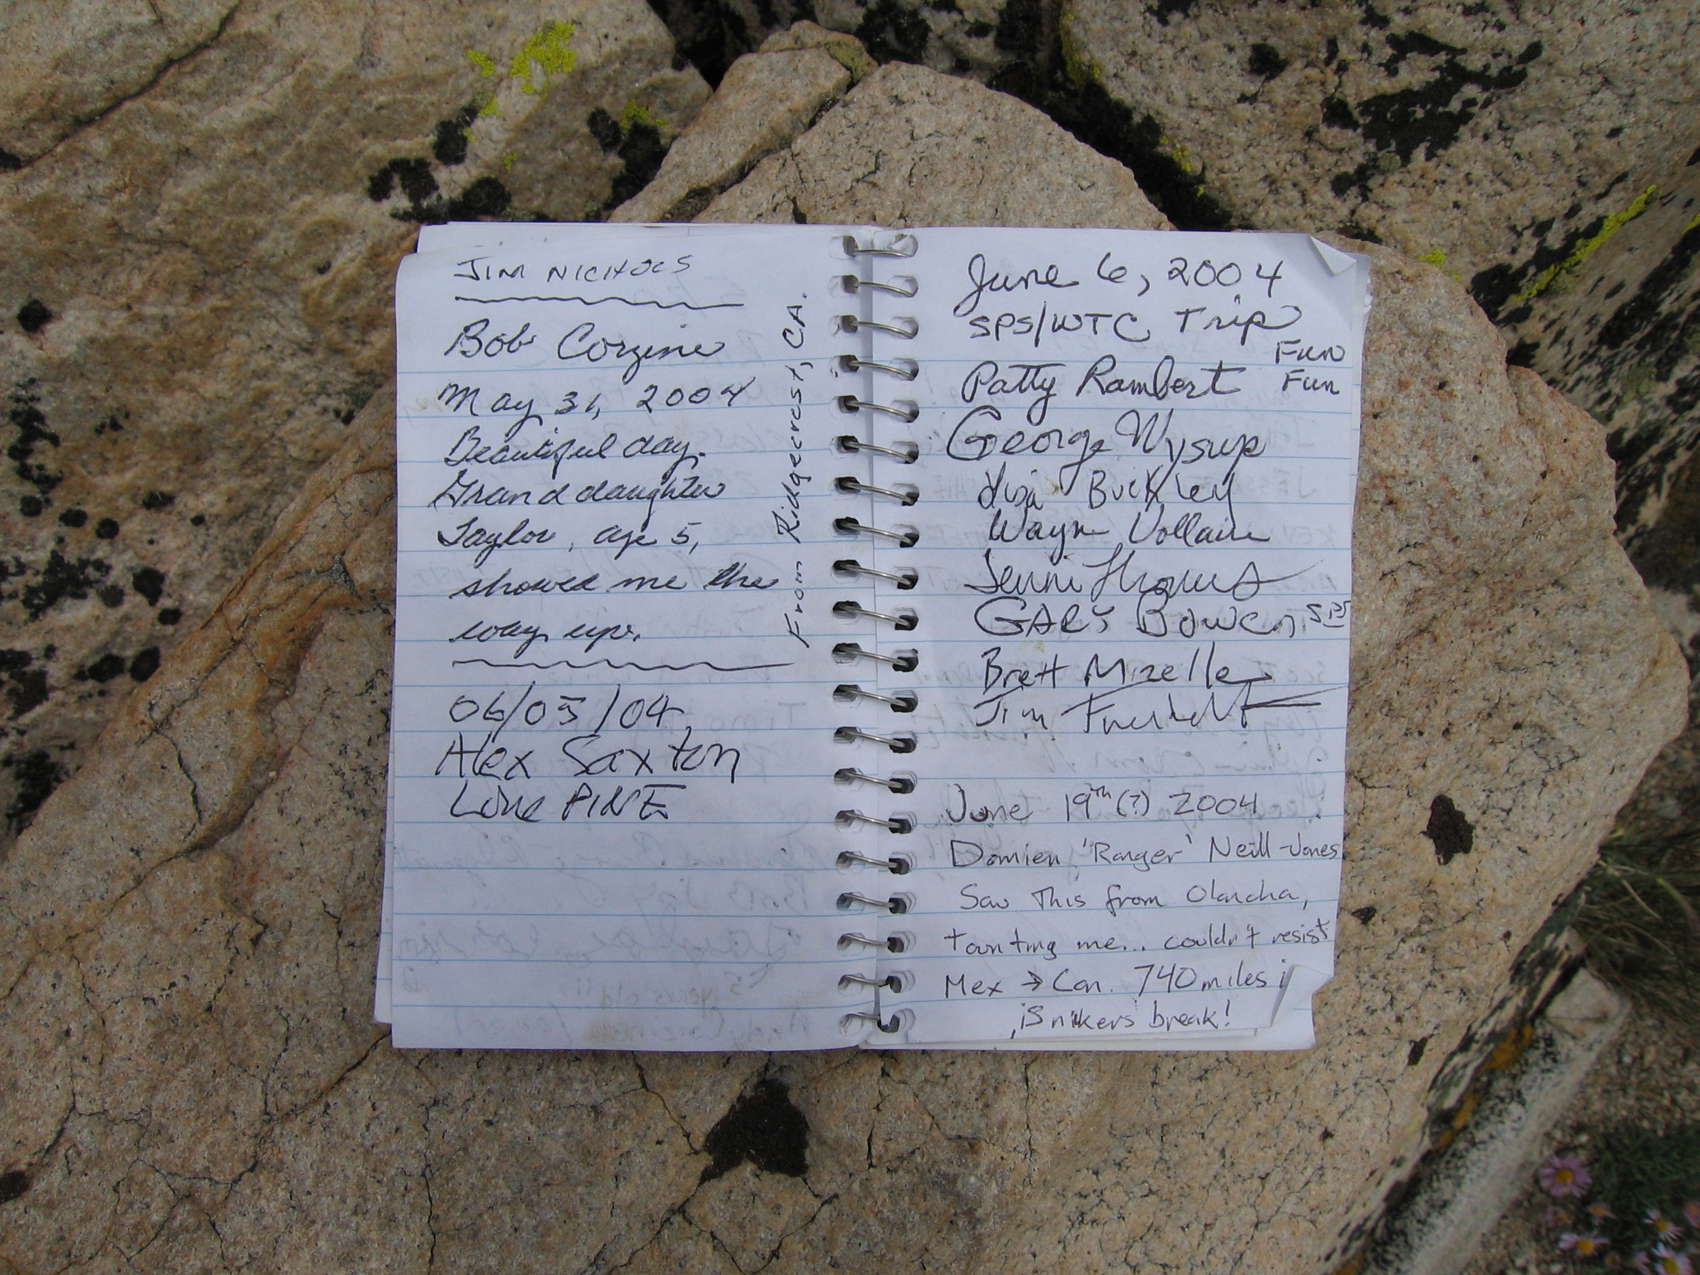 JIM NICHOLS
Bob Corzine
May 31, 2004
Beautiful day.
Grand daughter
Taylor, age 5,
showed me the
way up.
From Ridgecrest, CA.
06/05/04
Alex Saxton
Lone PINE
June 6, 2004
SPS/WTC Trip
Fun
Patty Rambert Fun
George Wysup
Lisa Buckley
Wayne Vollaire
Jenni Thomas
GARY BOWEN SPS
Brett Mizelle
Jim
June 19th (?) 2004
Damien 'Ranger' Neill-Jones
Saw This from Olancha,
taunting me... couldn't resist
Mex → Can. 740 miles
¡Snikers break!